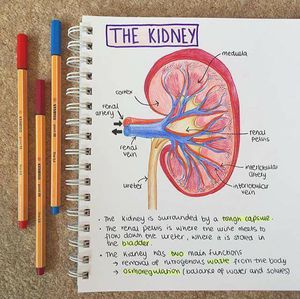 THE KIDNEY
medulla
cortex
renal artery
renal vein
renal pelvis
interlobular artery
interlobular vein
ureter
• The kidney is surrounded by a tough capsule.
• The renal pelvis is where the urine meets to
flow down the ureter, where it is stored in
the bladder.
• The kidney has two main functions
→ removal of nitrogenous waste from the body
→ osmoregulation (balance of water and solutes)